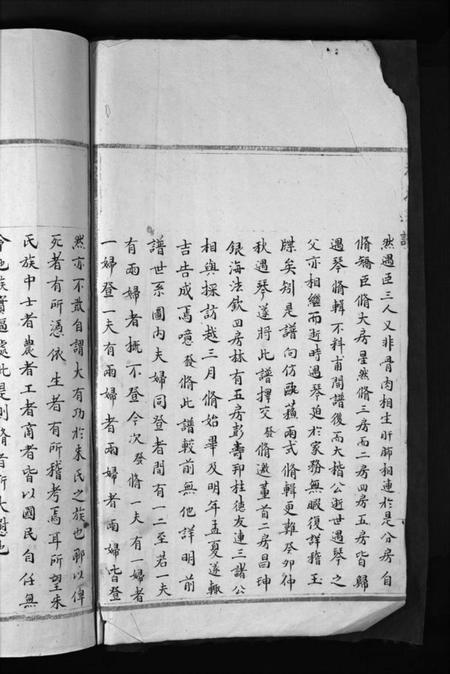 然遇臣三人又非骨肉相生肝肺相連於是分房自
脩矯臣脩大房星然脩三房而二房四房五房皆歸
遇琴脩輯不料甫開譜後而大楷公逝世遇琴之
父亦相繼而逝時遇琴迫於家務無暇復詳稽玉
牒矣矧是譜向仿歐蘓兩式脩輯更難癸卯仲
秋遇琴遂將此譜擇交發脩邀董首二房昌珅
銀海法欽四房林有五房彭壽邦柱德友連三諸公
相與採訪越三月脩始畢及明年孟夏遂輙
吉告成焉噫發脩此譜較前無他詳明前
譜世系圖內夫婦同登者間有一二至若一夫
有兩婦者概不登今次發脩一夫有一婦者
一婦登一夫有兩婦者兩婦皆登
然亦不敢自謂大有功於朱氏之族也聊以俾
死者有所憑依生者有所稽考焉耳所望朱
氏族中士者農者工者商者皆以國民自任無